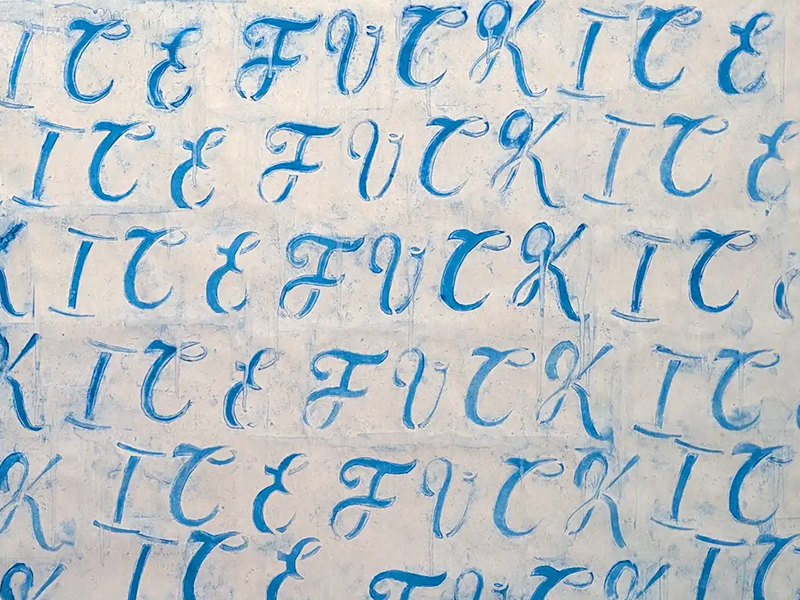 ICE FVCK ICE
ICE FVCK ICE
K ICE FVCK IC
K ICE FVCK IC
K ICE FVCK IC
K ICE FVCK IC